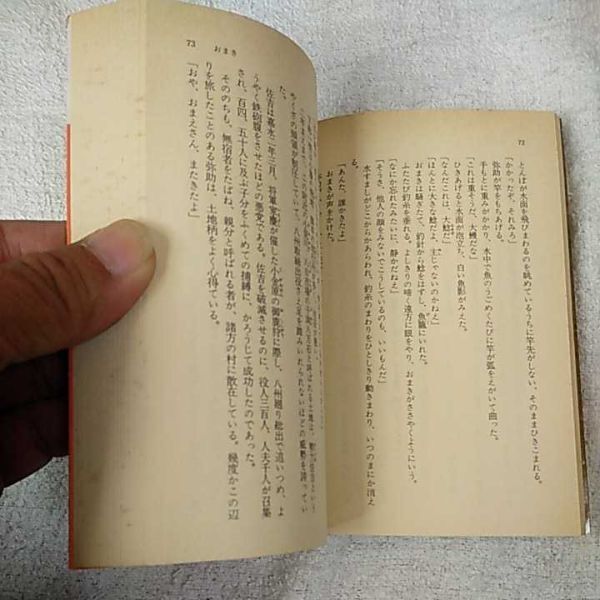 72
とんぼが水面を飛びまわるのを眺めているうちに竿先がしない、そのままひきこまれる。
「かかったぞ、それみろ」
弥助が竿をもちあげる。
手もとに重みがかかり、水中で魚のうごめくたびに竿が弧をえがいて曲った。
重そうだ、大鰻だな」
ひきあげると水面が泡立ち、白い魚影がみえた。
「なんだこれは、大鯰だ」
「ほんとに大きな鯰だよ、主じゃないのかねえ」
おまきは騒いで、釣針から鯰をはずし、魚籠にいれた。
ふたたび釣糸を垂れる。よしきりの啼く遠方に眼をやり、おまきがささやくようにいう。
「なにか忘れたみたいに、静かだねえ」
「そうさ、他人の顔をみないでこうしているのも、いいもんだ」
水すましがどこからかあらわれ、釣糸のまわりをひとしきり動きまわり、いつのまにか消え
る。
「あんた、誰かきたよ」
おまきが声をかけた。
73 おまき
た。
佐吉は嘉永二年三月、将軍家慶が催した小金原の御鹿狩に際し、八州廻り総出で追いつめ、よ
うやく鉄砲腹をさせたほどの悪党である。佐吉を破滅させるのに、役人三百人、人夫千人が召集
され、百四、五十人に及ぶ子分をふくめての捕縛に、かろうじて成功したのであった。
そののちも、無宿者をたばね、親分と呼ばれる者が、諸方の村に散在している。幾度かこの辺
りを旅したことのある弥助は、土地柄をよく心得ている。
「おや、おまえさん、またきたよ」